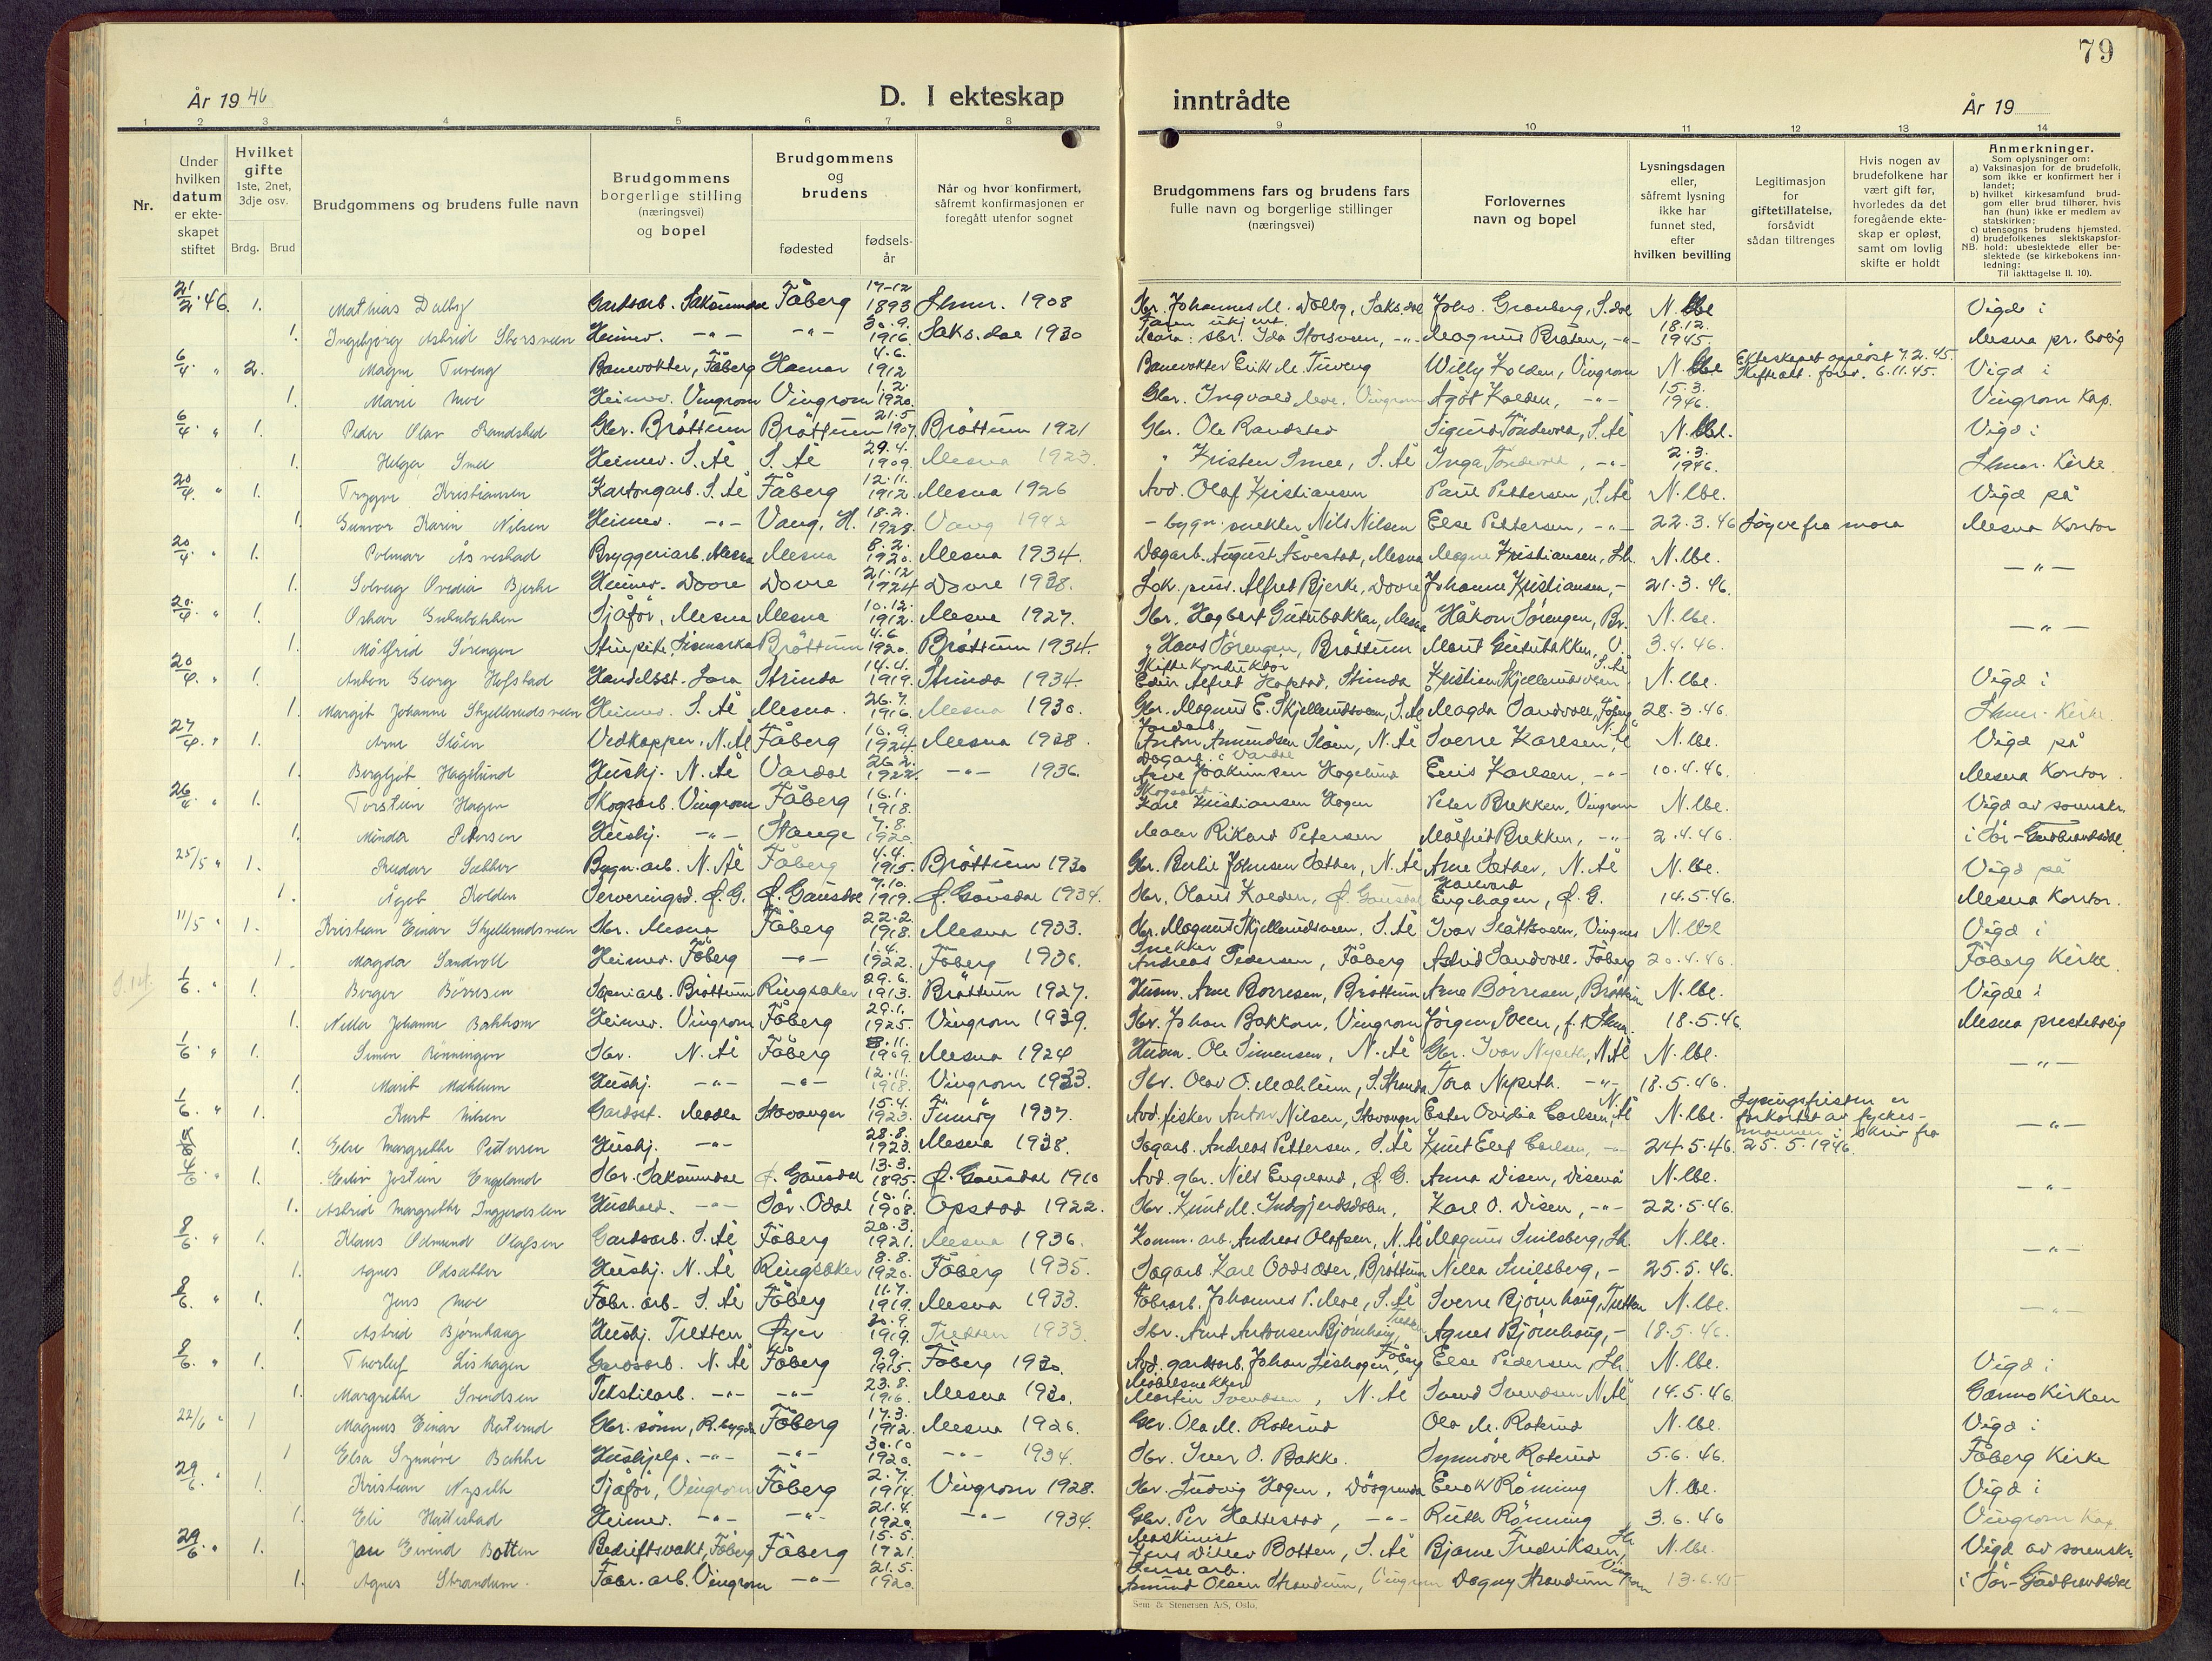 79
År 1946
D. I ekteskap inntrådte
År 19
1 2 3 4 5 6 7 8 9 10 11 12 13 14
Nr.
Under hvilken datum er ekteskapet stiftet
Hvilket gifte 1ste, 2net, 3dje osv.
Brdg. Brud
Brudgommens og brudens fulle navn
Brudgommens borgerlige stilling (næringsvei) og bopel
Brudgommens og brudens
fødested
fødsels-år
Når og hvor konfirmert, såfremt konfirmasjonen er foregått utenfor sognet
Brudgommens fars og brudens fars fulle navn og borgerlige stillinger (næringsvei)
Forlovernes navn og bopel
Lysningsdagen eller, såfremt lysning ikke har funnet sted, efter hvilken bevilling
Legitimasjon for giftetillatelse, forsåvidt sådan tiltrenges
Hvis nogen av brudefolkene har vært gift før, hvorledes da det foregående ekteskap er opløst, samt om lovlig skifte er holdt
Anmerkninger.
Som oplysninger om:
a) Vaksinasjon for de brudefolk, som ikke er konfirmert her i landet;
b) hvilket kirkesamfund brudgom eller brud tilhører, hvis han (hun) ikke er medlem av statskirken;
c) utensogns brudens hjemsted.
d) brudefolkenes slektskapsforhold: ubeslektede eller beslektede (se kirkebokens innledning:
NB.
Til iakttagelse II. 10).
21/2 46. 1. Mathias Dalby Gardsarb. Saksumdal Fåberg 17-12 1893 Lhmr. 1908 Sbr. Johannes M. Dalby, Saks.dal Johs. Granberg, S.dal N. lbl Vigd i
1. Ingebjørg Astrid Storsveen Heimev. -"- -"- 30.9. 1916 Saks.dal 1930 Faren ukjent. Mora: sbr. Ida Storsveen, -"- Magnus Bråten, -"- 18.12. 1945. Mesna pr. bolig
6/4 " 2. Magne Tuveng Banevokter, Fåberg Hamar 4.6. 1912 Banevokter Erik M. Tuveng Willy Kolden, Vingrom N. lbl Ekteskapet oppløst 7.2.45. Skifteatt. forev. 6.11.45. Vigd i
1. Marie Moe Heimev. Vingrom Vingrom 1.2. 1920. Gbr. Ingvald Moe, Vingrom Ågot Kolden, -"- 15.3. 1946. Vingrom Kap.
6/4 " 1. Peder Olav Randsted Gbr. Brøttum Brøttum 21.5 1907 Brøttum 1921 Gbr. Ole Randsted Sigurd Sandvold, S. Ål N. lbl. Vigd i
1. Helga Smee Heimev. S. Ål S. Ål 29.4. 1909. Mesna 1923. " Kristen Smee, S. Ål Inga Sandvold, -"- 2.3. 1946. Lhmr. Kirke
20/4. " 1. Trygve Kristiansen Kartongarb. S. Ål Fåberg 12.11. 1912 Mesna 1926 Avd. Olaf Kristiansen Paul Pettersen, S. Ål N. lbe. Vigd på
1. Gunvor Karin Nilsen Heimev. -"- Vang, H. 18.2. 1928. Vang 1942 - bygn. snekker Nils Nilsen Else Pettersen, -"- 22.3.46 Løyve fra mora Mesna Kontor
20/4. " 1. Polmar Åsvestad Bryggeriarb. Mesna Mesna 8.2. 1920. Mesna 1934. Dagarb. August Åsvestad, Mesna Magne Kristiansen, Lh. N. lbe. -"-
1. Solveig Ovedia Bjerke Heimev. Dovre Dovre 21.12 1924 Dovre 1938. Lok. puss. Alfred Bjerke, Dovre Johanne Kristiansen, - 21.3.46.
20/4 " 1. Oskar Gutubakken Sjåfør, Mesna Mesna 10.12. 1912. Mesna 1927. Sbr. Hagbart Gutubakken, Mesna Håkon Sørengen, Br. N. lbe. -"-
1. Målfrid Sørengen Brøttum 4.6 1920. Brøttum 1934. " Hans Sørengen, Brøttum Marit Gutubakken, 3.4.46.
20/4. " 1. Anton Georg Hofstad Handelsst. Strinda 14.4. 1919. Strinda 1934. Skiftekonduktør Edin Alfred Hofstad, Strinda Kristian Skjellerudsveen S. Ål N. lbe. Vigd i
1. Margit Johanne Skjellerudsveen Heimev. S. Ål Mesna. 26.7. 1916. Mesna 1930. Gbr. Magnus E. Skjellerudsveen, S. Ål Magda Sandvoll, Fåberg 28.3.46. Lhmr. Kirke.
27/4. " 1. Arne Slåen Vedkapper, N. Ål Fåberg 16.9. 1924. Mesna 1938. Jordarb. Anton Amundsen Slåen, N. Ål Sverre Karlsen, N. Ål N. lbe. Vigd på
1. Bergljot Hagelund Hushj. N. Ål Vardal 26.2. 1922. -"- 1936. Dagarb. i Vardal Arne Joakimsen Hagelund Enis Karlsen, -"- 10.4.46. Mesna Kontor.
26/4. " 1. Torstein Hagen Skogsarb. Vingrom Fåberg 16.1. 1918. Skogsarb. Karl Kristiansen Hagen Peter Brekken, Vingrom N. lbe. Vigd av sorenskr.
1. Minda Petersen Hushj. -"- Stange 7.8. 1920. Maler Rikard Petersen Målfrid Brekken, -"- 2.4.46. i Sør-Gudbrandsdal
25/5 " 1. Reidar Sæther Bygn.arb. N. Ål Fåberg 4.4. 1915. Brøttum 1930 Gbr. Berlie Johnsen Sæther, N. Ål Arne Sæther, N. Ål N. lbe. Vigd på
1. Ågot Kolden Serveringsd. Ø.G. Ø. Gausdal 7.10. 1919. Ø. Gausdal 1934. Sbr. Olaus Kolden, Ø. Gausdal Halvard Engehagen, Ø. G. 14.5.46. Mesna Kontor.
11/5 " 1. Kristian Einar Skjellerudsveen Sbr. Mesna Fåberg 22.2. 1918. Mesna 1933. Gbr. Magnus Skjellerudsveen, S. Ål Ivar Slåttsveen, Vingnes N. lbl Vigd i
1. Magda Sandvoll Heimev. Fåberg -"- 1.4. 1922. Fåberg 1936. Snekker Andreas Pedersen, Fåberg Astrid Sandvoll. Fåberg 20.4.46. Fåberg Kirke.
1/6. " 1. Birger Børresen Brøttum Ringsaker 29.6. 1913. Brøttum 1927. Husm. Arne Børresen, Brøttum Arne Børresen, Brøttum N. lbe. Vigde i
1. Nilla Johanne Bakkom Heimev. Vingrom Fåberg 29.1. 1925. Vingrom 1939. Sbr. Johan Bakkom, Vingrom Jørgen Sveen, f. Lhmr. 18.5.46. Mesna prestebolig
1/6. " 1. Simen Rønningen Sbr. N. Ål Fåberg 8.11. 1909 Mesna 1924 Husm. Ole Simensen, N. Ål Gbr. Ivar Nyseth, N. Ål N. lbe. -"-
1. Marit Mæhlum Hushj. -"- -"- 12.11. 1918. Vingrom 1933. Sbr. Olav O. Mæhlum, S. Stranda Tora Nyseth. -"- 18.5.46.
1/6. " 1. Kurt Nilsen Gardsst. Madla Stavanger 15.4. 1923. 1937. Avd. fisker Anton Nilsen, Stavanger Ester Ovidia Carlsen, N. Ål N. lbe. Lysningsfristen er forkortet av fylkesmannen i skriv fra 25.5.1946. -"-
1. Else Margrethe Pettersen Hushj. -"- 28.8. 1923. Mesna 1938. Dagarb. Andreas Pettersen, S. Ål Knut Elef Carlsen, -"- 24.5.46
4/6. " 1. Jostein Engeland Sbr. Saksumdal Ø. Gausdal 13.3. 1895. Ø. Gausdal 1910 Avd. gbr. Nils Engeland, Ø. G. Anna Disen, Disenå N. lbe. -"-
1. Astrid Margrethe Hushold. -"- Sør-Odal 10.1. 1908. Opstad 1922. Sbr. Knut M. Karl O. Disen, -"- 22.5.46.
8/6. " 1. Klaus Edmund Olafsen Gardsarb. S. Ål Fåberg 20.3. 1921. Mesna 1936. Komm. arb. Andreas Olafsen, N. Ål Magnus Smilsberg, Lh. N. lbe. -"-
1. Agnes Odsæther Hushj. N. Ål Ringsaker 8.8. 1920. Fåberg 1935. Dagarb. Karl Oddsæter, Brøttum Nilla Smilsberg, - 25.5.46.
8/6. " 1. Jens Moe Fabr. arb. S. Ål Fåberg 11.7. 1919. Mesna 1933. Fabrarb. Johannes P. Moe, S. Ål Sverre Bjørnhaug, Tretten N. lbe. -"-
1. Astrid Bjørnhaug Hushj. Tretten Øyer 20.9. 1919. Tretten 1933. Sbr. Amt Antonsen Bjørnhaug, Tretten Agnes Bjørnhaug, - 18.5.46.
8/6. " 1. Thorleif Lishagen Gardsarb. N. Ål Fåberg 9.9. 1915. Fåberg 1930. Avd. gardsarb. Johan Lishagen, Fåberg Else Pedersen, Lh. N. lbe. Vigd i
1. Margrethe Svendsen Tekstilarb. -"- -"- 23.8. 1916. Mesna 1930. Møbelsnekker Martin Svendsen, N. Ål Svend Svendsen N. Ål 14.5.46. Garmo Kirken
22/6 " 1 Magnus Einar Roterud Gbr. sønn, R.bygda Fåberg 17.3. 1912. Mesna 1926. Gbr. Ola M. Roterud Ola M. Roterud N. lbe. Vigd i
1 Elsa Synnøve Bakke Hushjelp. -"- -"- 30.10 1920. -"- 1934. Sbr. Iver O. Bakke. Synnøve Roterud 5.6.46. Fåberg Kirke
29/6. " 1. Kristian Nyseth Sjåfør, Vingrom Fåberg 2.7. 1914. Vingrom 1928. Sbr. Ludvig Hagen, Enok Rønning N. lbe. Vigd i
1. Eli Hattestad Heimev. -"- -"- 21.4. 1920. -"- 1934. Gbr. Per Hattestad, -"- Ruth Rønning 3.6.46 Vingrom Kap.
29/6. " 1. Jan Eivind Botten Bedriftsvakt, Fåberg Fåberg 15.5. 1921. Maskinist Jens Ditlev Botten, S. Ål Bjarne Fredriksen, Lh N. lbe. Vigd av sorenskr.
1. Agnes Strandum. Fabr. arb. Vingrom -"- 21.5. 1920. Amund Olsen Strandum, Vingrom Dagny Strandum Vingrom 13.6.45 i Sør-Gudbrandsdal
Sem & Stenersen A/S, Oslo,